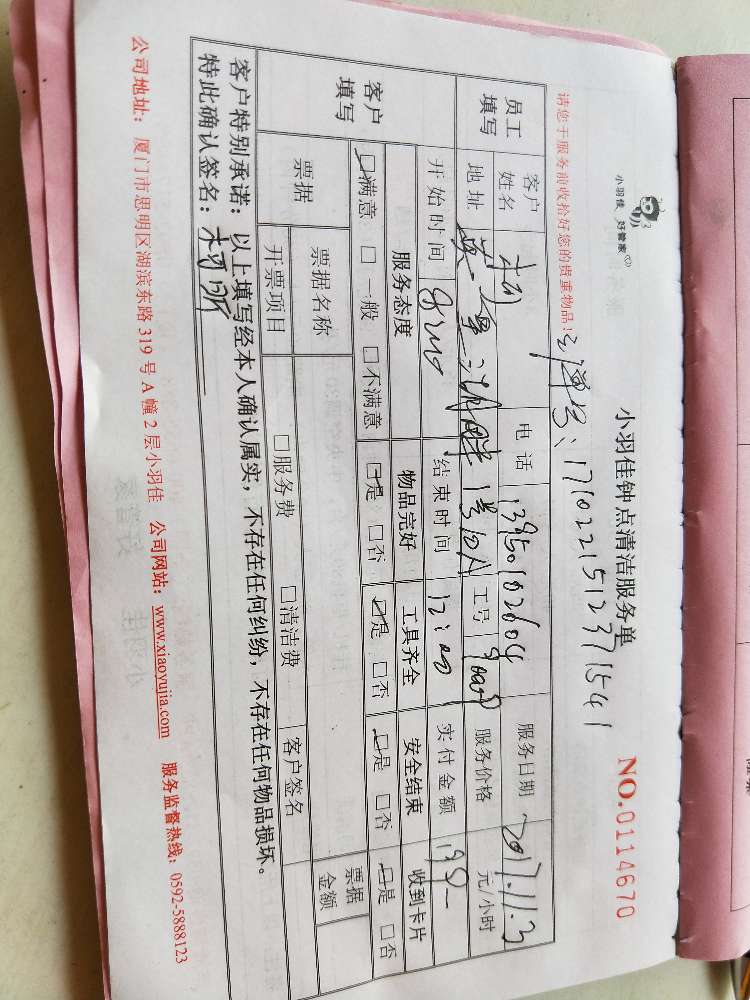 小羽佳 好管家
小羽佳钟点清洁服务单
NO.0114670
请您于服务前收拾好您的贵重物品！
1710221512371541
员工填写 客户姓名 电话 13950102604 服务日期 2017.11.3
地址 工号 服务价格 元/小时
开始时间 结束时间 12:00 实付金额
客户填写 服务态度 物品完好 工具齐全 安全结束 收到卡片
☑满意 □一般 □不满意 ☑是 □否 ☑是 □否 ☑是 □否 ☑是 □否
票据 票据名称 票据金额
开票项目 □服务费 □清洁费 客户签名
客户特别承诺：以上填写经本人确认属实，不存在任何纠纷，不存在任何物品损坏。
特此确认签名：
公司地址：厦门市思明区湖滨东路 319 号 A 幢 2 层小羽佳 公司网站：www.xiaoyujia.com 服务监督热线：0592-5888123